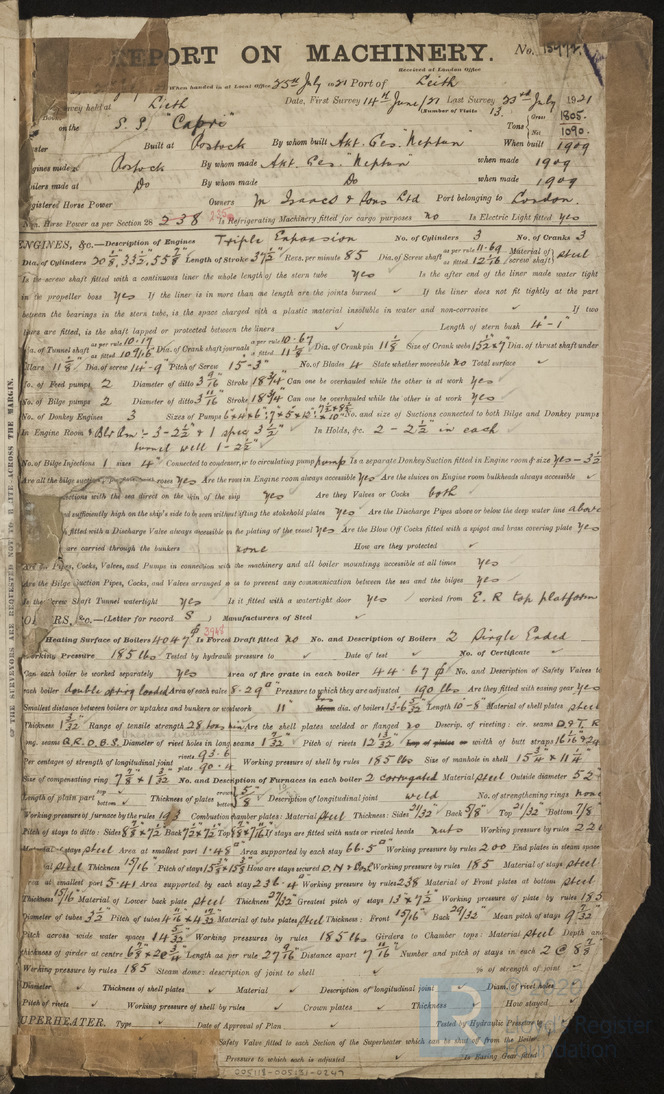 REPORT ON MACHINERY. No. 15972.
Received at London Office
When handed in at Local Office 25th July 1921 Port of Leith
Survey held at Leith Date, First Survey 14th June/21 Last Survey 23rd July 1921
(Number of Visits 13.
on the S.S. "Capri" Tons Gross 1805. Net 1090.
Built at Rostock By whom built Akt. Ges. "Neptun" When built 1909
Engines made at Rostock By whom made Akt. Ges. "Neptun" when made 1909
Boilers made at Do By whom made Do when made 1909
Registered Horse Power Owners M Isaacs & Sons Ltd Port belonging to London.
Nom. Horse Power as per Section 28 238 Is Refrigerating Machinery fitted for cargo purposes no Is Electric Light fitted yes
ENGINES, &c.—Description of Engines Triple Expansion No. of Cylinders 3 No. of Cranks 3
Dia. of Cylinders Length of Stroke 37½" Revs. per minute 85 Dia. of Screw shaft as per rule 11.69 as fitted Material of screw shaft steel
Is the screw shaft fitted with a continuous liner the whole length of the stern tube yes Is the after end of the liner made water tight
in the propeller boss yes If the liner is in more than one length are the joints burned ✓ If the liner does not fit tightly at the part
between the bearings in the stern tube, is the space charged with a plastic material insoluble in water and non-corrosive ✓ If two
liners are fitted, is the shaft lapped or protected between the liners ✓ Length of stern bush 4'-1"
Dia. of Tunnel shaft as per rule 10.17 as fitted 10 9/16" Dia. of Crank shaft journals as per rule 10.67 as fitted 11 1/8" Dia. of Crank pin 11 1/8 Size of Crank webs Dia. of thrust shaft under
collars 11 1/8" Dia. of screw 14'-9" Pitch of Screw 15'-3" No. of Blades 4 State whether moveable no Total surface ✓
No. of Feed pumps 2 Diameter of ditto 3 9/16" Stroke 18 3/4" Can one be overhauled while the other is at work yes
No. of Bilge pumps 2 Diameter of ditto 3 11/16" Stroke 18 3/4" Can one be overhauled while the other is at work yes
No. of Donkey Engines 3 Sizes of Pumps No. and size of Suctions connected to both Bilge and Donkey pumps
In Engine Room & Blr Rm :- 3-2½" & 1 spec 3½" In Holds, &c. 2 - 2½" in each
tunnel well 1-2½"
No. of Bilge Injections 1 sizes 4" Connected to condenser, or to circulating pump pump Is a separate Donkey Suction fitted in Engine room & size yes - 3½
Are all the bilge suction roses yes Are the roses in Engine room always accessible yes Are the sluices on Engine room bulkheads always accessible ✓
connections with the sea direct on the skin of the ship yes Are they Valves or Cocks both
sufficiently high on the ship's side to be seen without lifting the stokehold plates yes Are the Discharge Pipes above or below the deep water line above
fitted with a Discharge Valve always accessible on the plating of the vessel yes Are the Blow Off Cocks fitted with a spigot and brass covering plate yes
are carried through the bunkers none How are they protected ✓
Are all Pipes, Cocks, Valves, and Pumps in connection with the machinery and all boiler mountings accessible at all times yes
Are the Bilge Suction Pipes, Cocks, and Valves arranged so as to prevent any communication between the sea and the bilges yes
Is the Screw Shaft Tunnel watertight yes Is it fitted with a watertight door yes worked from E.R top platform
BOILERS, &c.—(Letter for record S) Manufacturers of Steel
Heating Surface of Boilers 4047 Is Forced Draft fitted no No. and Description of Boilers 2 Single Ended
Working Pressure 185 lbs Tested by hydraulic pressure to ✓ Date of test ✓ No. of Certificate ✓
Can each boiler be worked separately yes Area of fire grate in each boiler 44.67 No. and Description of Safety Valves to
each boiler double spring loaded Area of each valve 8.29" Pressure to which they are adjusted 190 lbs Are they fitted with easing gear yes
Smallest distance between boilers or uptakes and bunkers or woodwork 11" dia. of boilers Length 10'-8" Material of shell plates steel
Thickness 1 3/32 Range of tensile strength 28 tons min Are the shell plates welded or flanged no Descrip. of riveting: cir. seams D.&T. R
long. seams Q.R.D.B.S. Diameter of rivet holes in long. seams 1 7/32" Pitch of rivets 12 13/32 width of butt straps
Per centages of strength of longitudinal joint rivets 93.6 plate 90.4 Working pressure of shell by rules 185 lbs Size of manhole in shell 15 3/4 × 11 3/4
Size of compensating ring No. and Description of Furnaces in each boiler 2 corrugated Material steel Outside diameter 52"
Length of plain part top bottom Thickness of plates crown bottom 5/8" Description of longitudinal joint weld No. of strengthening rings none
Working pressure of furnace by the rules 193 Combustion chamber plates: Material steel Thickness: Sides 21/32" Back 5/8" Top 21/32" Bottom 7/8
Pitch of stays to ditto: Sides Back Top If stays are fitted with nuts or riveted heads nuts Working pressure by rules 221
Material of stays steel Area at smallest part 1.48" Area supported by each stay 66.5" Working pressure by rules 200 End plates in steam space
Material steel Thickness 15/16" Pitch of stays How are stays secured D.N + Working pressure by rules 185 Material of stays steel
Area at smallest part 5.41 Area supported by each stay 236.4 Working pressure by rules 238 Material of Front plates at bottom steel
Thickness 15/16" Material of Lower back plate steel Thickness 27/32" Greatest pitch of stays 13" × 7½ Working pressure of plate by rules 185
Diameter of tubes 3½ Pitch of tubes Material of tube plates steel Thickness: Front 15/16" Back 29/32" Mean pitch of stays 9 7/32
Pitch across wide water spaces 14 5/32" Working pressures by rules 185 lbs Girders to Chamber tops: Material steel Depth and
thickness of girder at centre Length as per rule 27 9/16" Distance apart 7 7/16" Number and pitch of stays in each 2 @ 8 7/8
Working pressure by rules 185 Steam dome: description of joint to shell ✓ % of strength of joint ✓
Diameter ✓ Thickness of shell plates ✓ Material ✓ Description of longitudinal joint ✓ Diam. of rivet holes ✓
Pitch of rivets ✓ Working pressure of shell by rules ✓ Crown plates ✓ Thickness ✓ How stayed ✓
SUPERHEATER. Type ✓ Date of Approval of Plan ✓ Tested by Hydraulic Pressure to ✓
Safety Valve fitted to each Section of the Superheater which can be shut off from the Boiler ✓
Pressure to which each is adjusted ✓ Is Easing Gear fitted ✓
005118-005131-0247
Lloyd's Register
Foundation